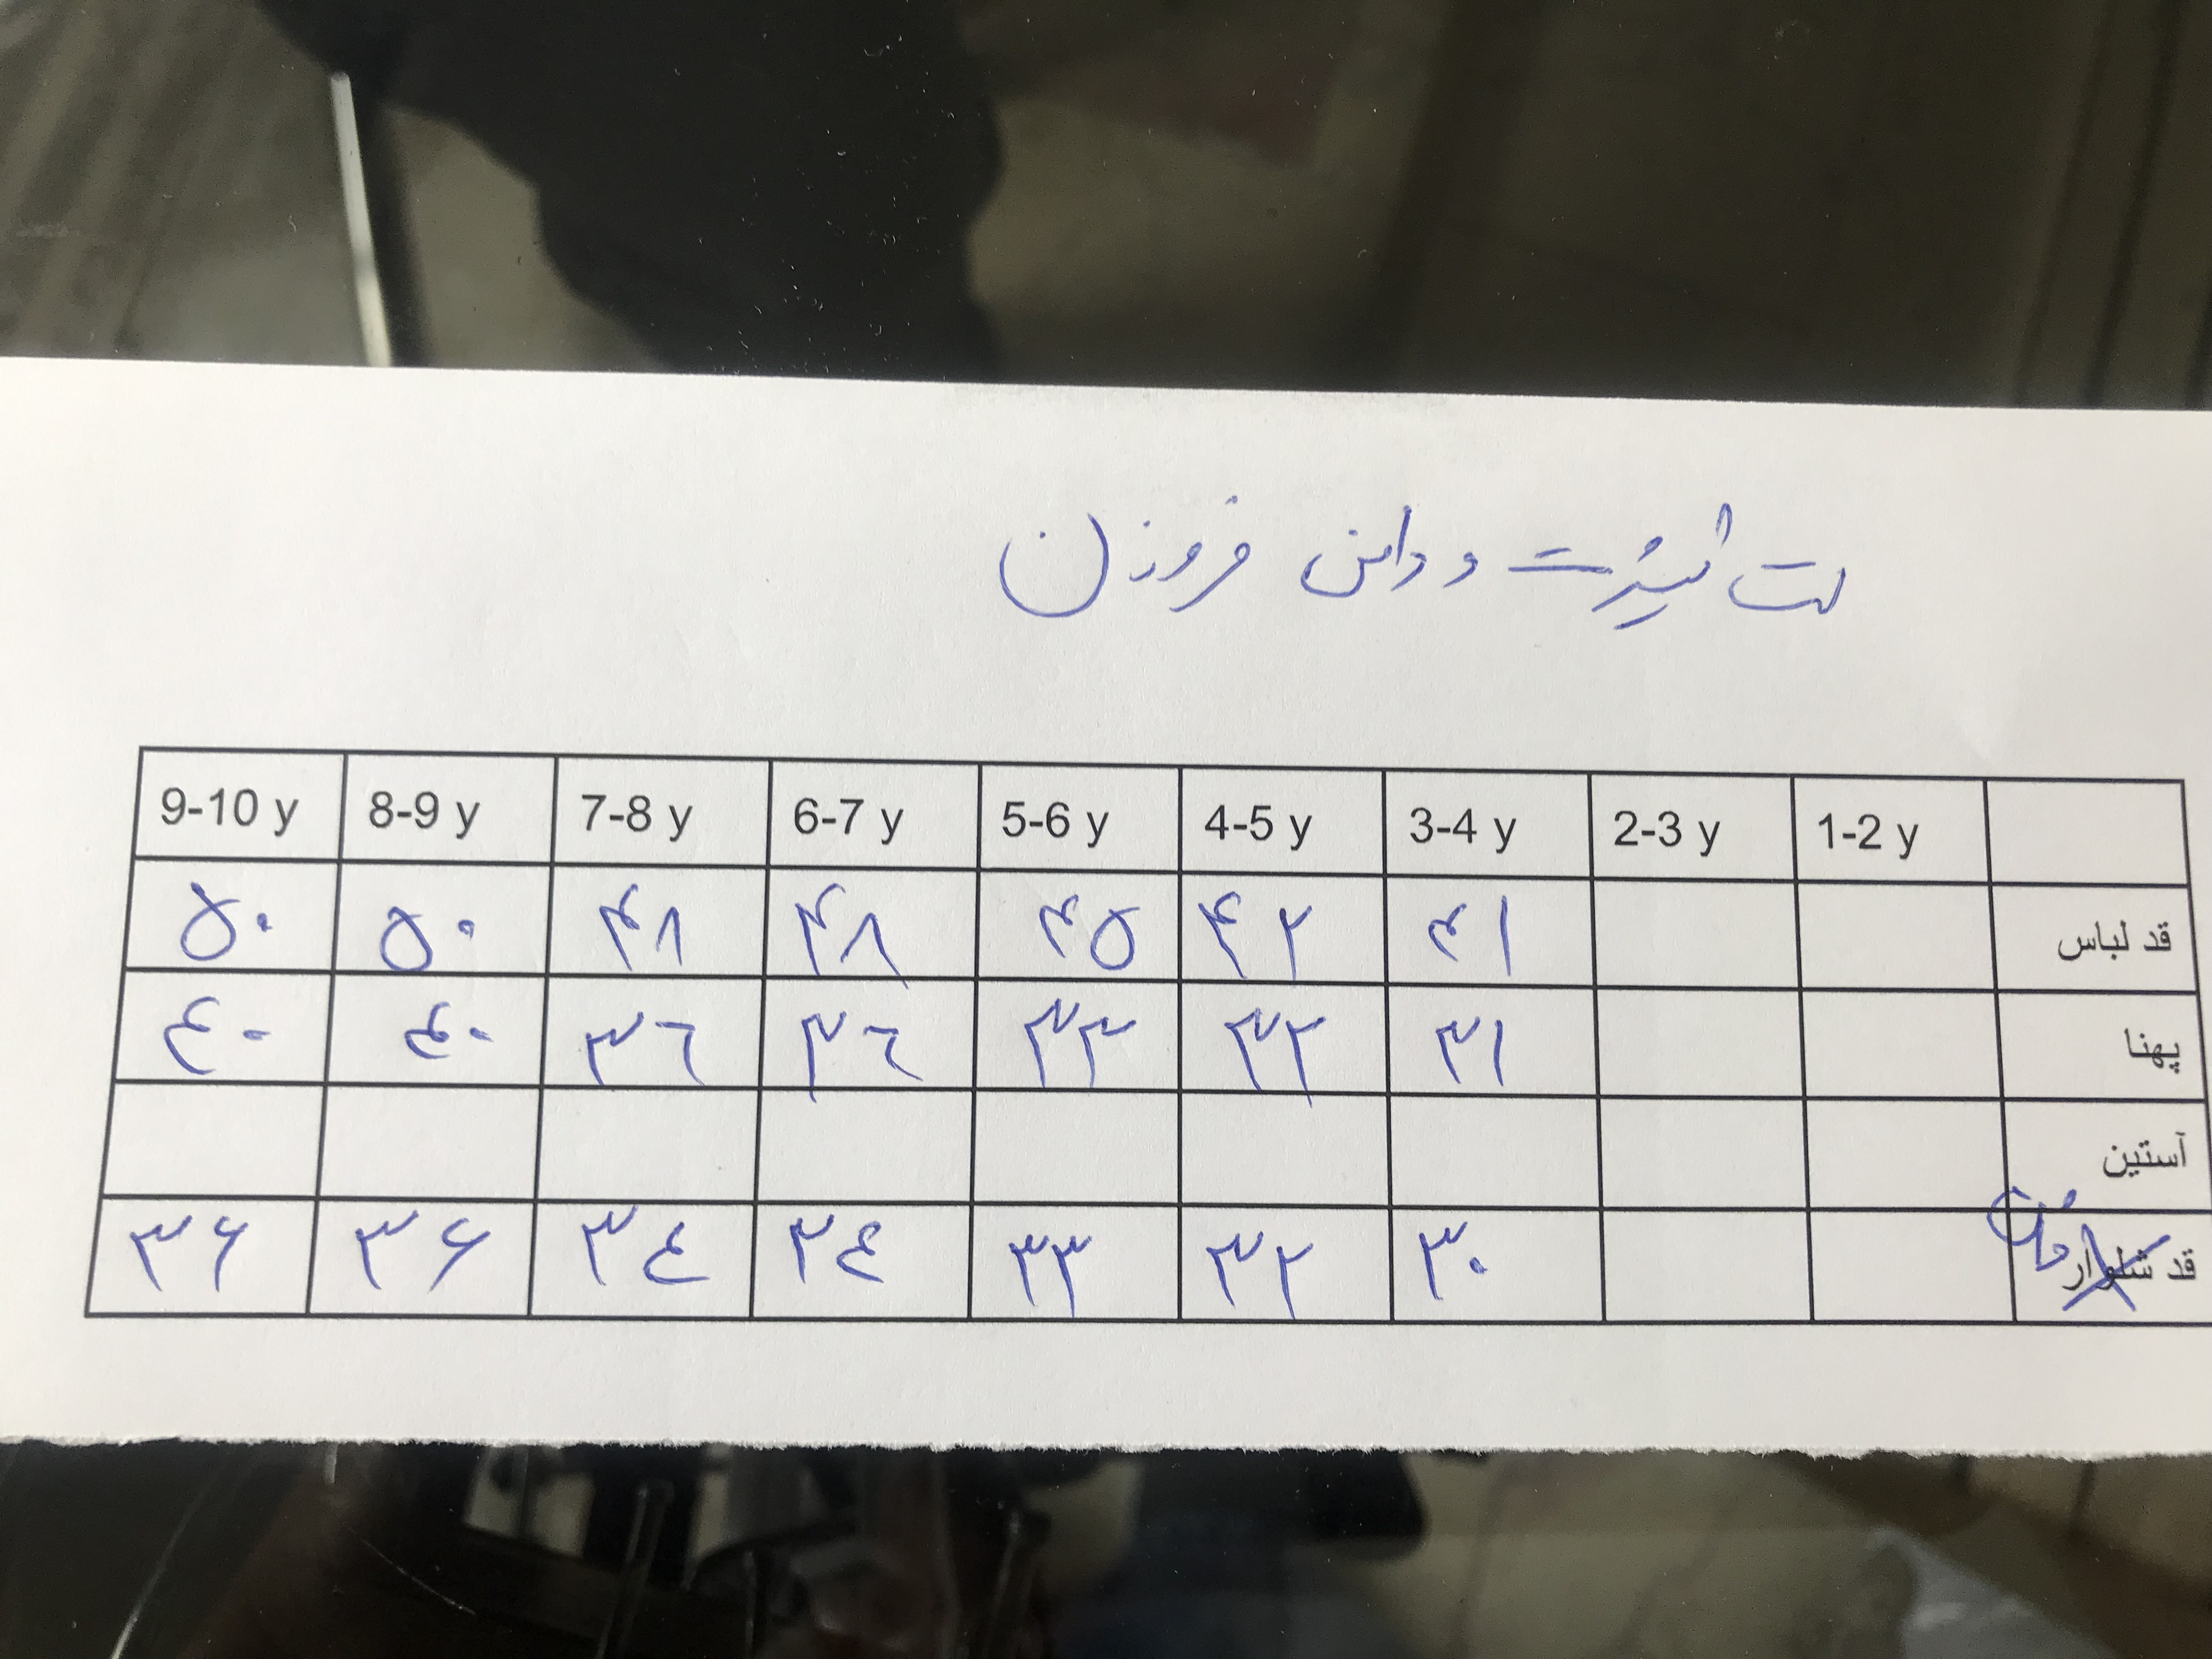 ست تیشرت و دامن فروزن
1-2 y 2-3 y 3-4 y 4-5 y 5-6 y 6-7 y 7-8 y 8-9 y 9-10 y
قد لباس ۴۱ ۴۲ ۴۵ ۴۸ ۴۸ ۵۰ ۵۰
پهنا ۳۱ ۳۲ ۳۳ ۳۶ ۳۶ ۴۰ ۴۰
آستین
قد شلوار دامن ۳۰ ۳۲ ۳۳ ۳۴ ۳۴ ۳۶ ۳۶